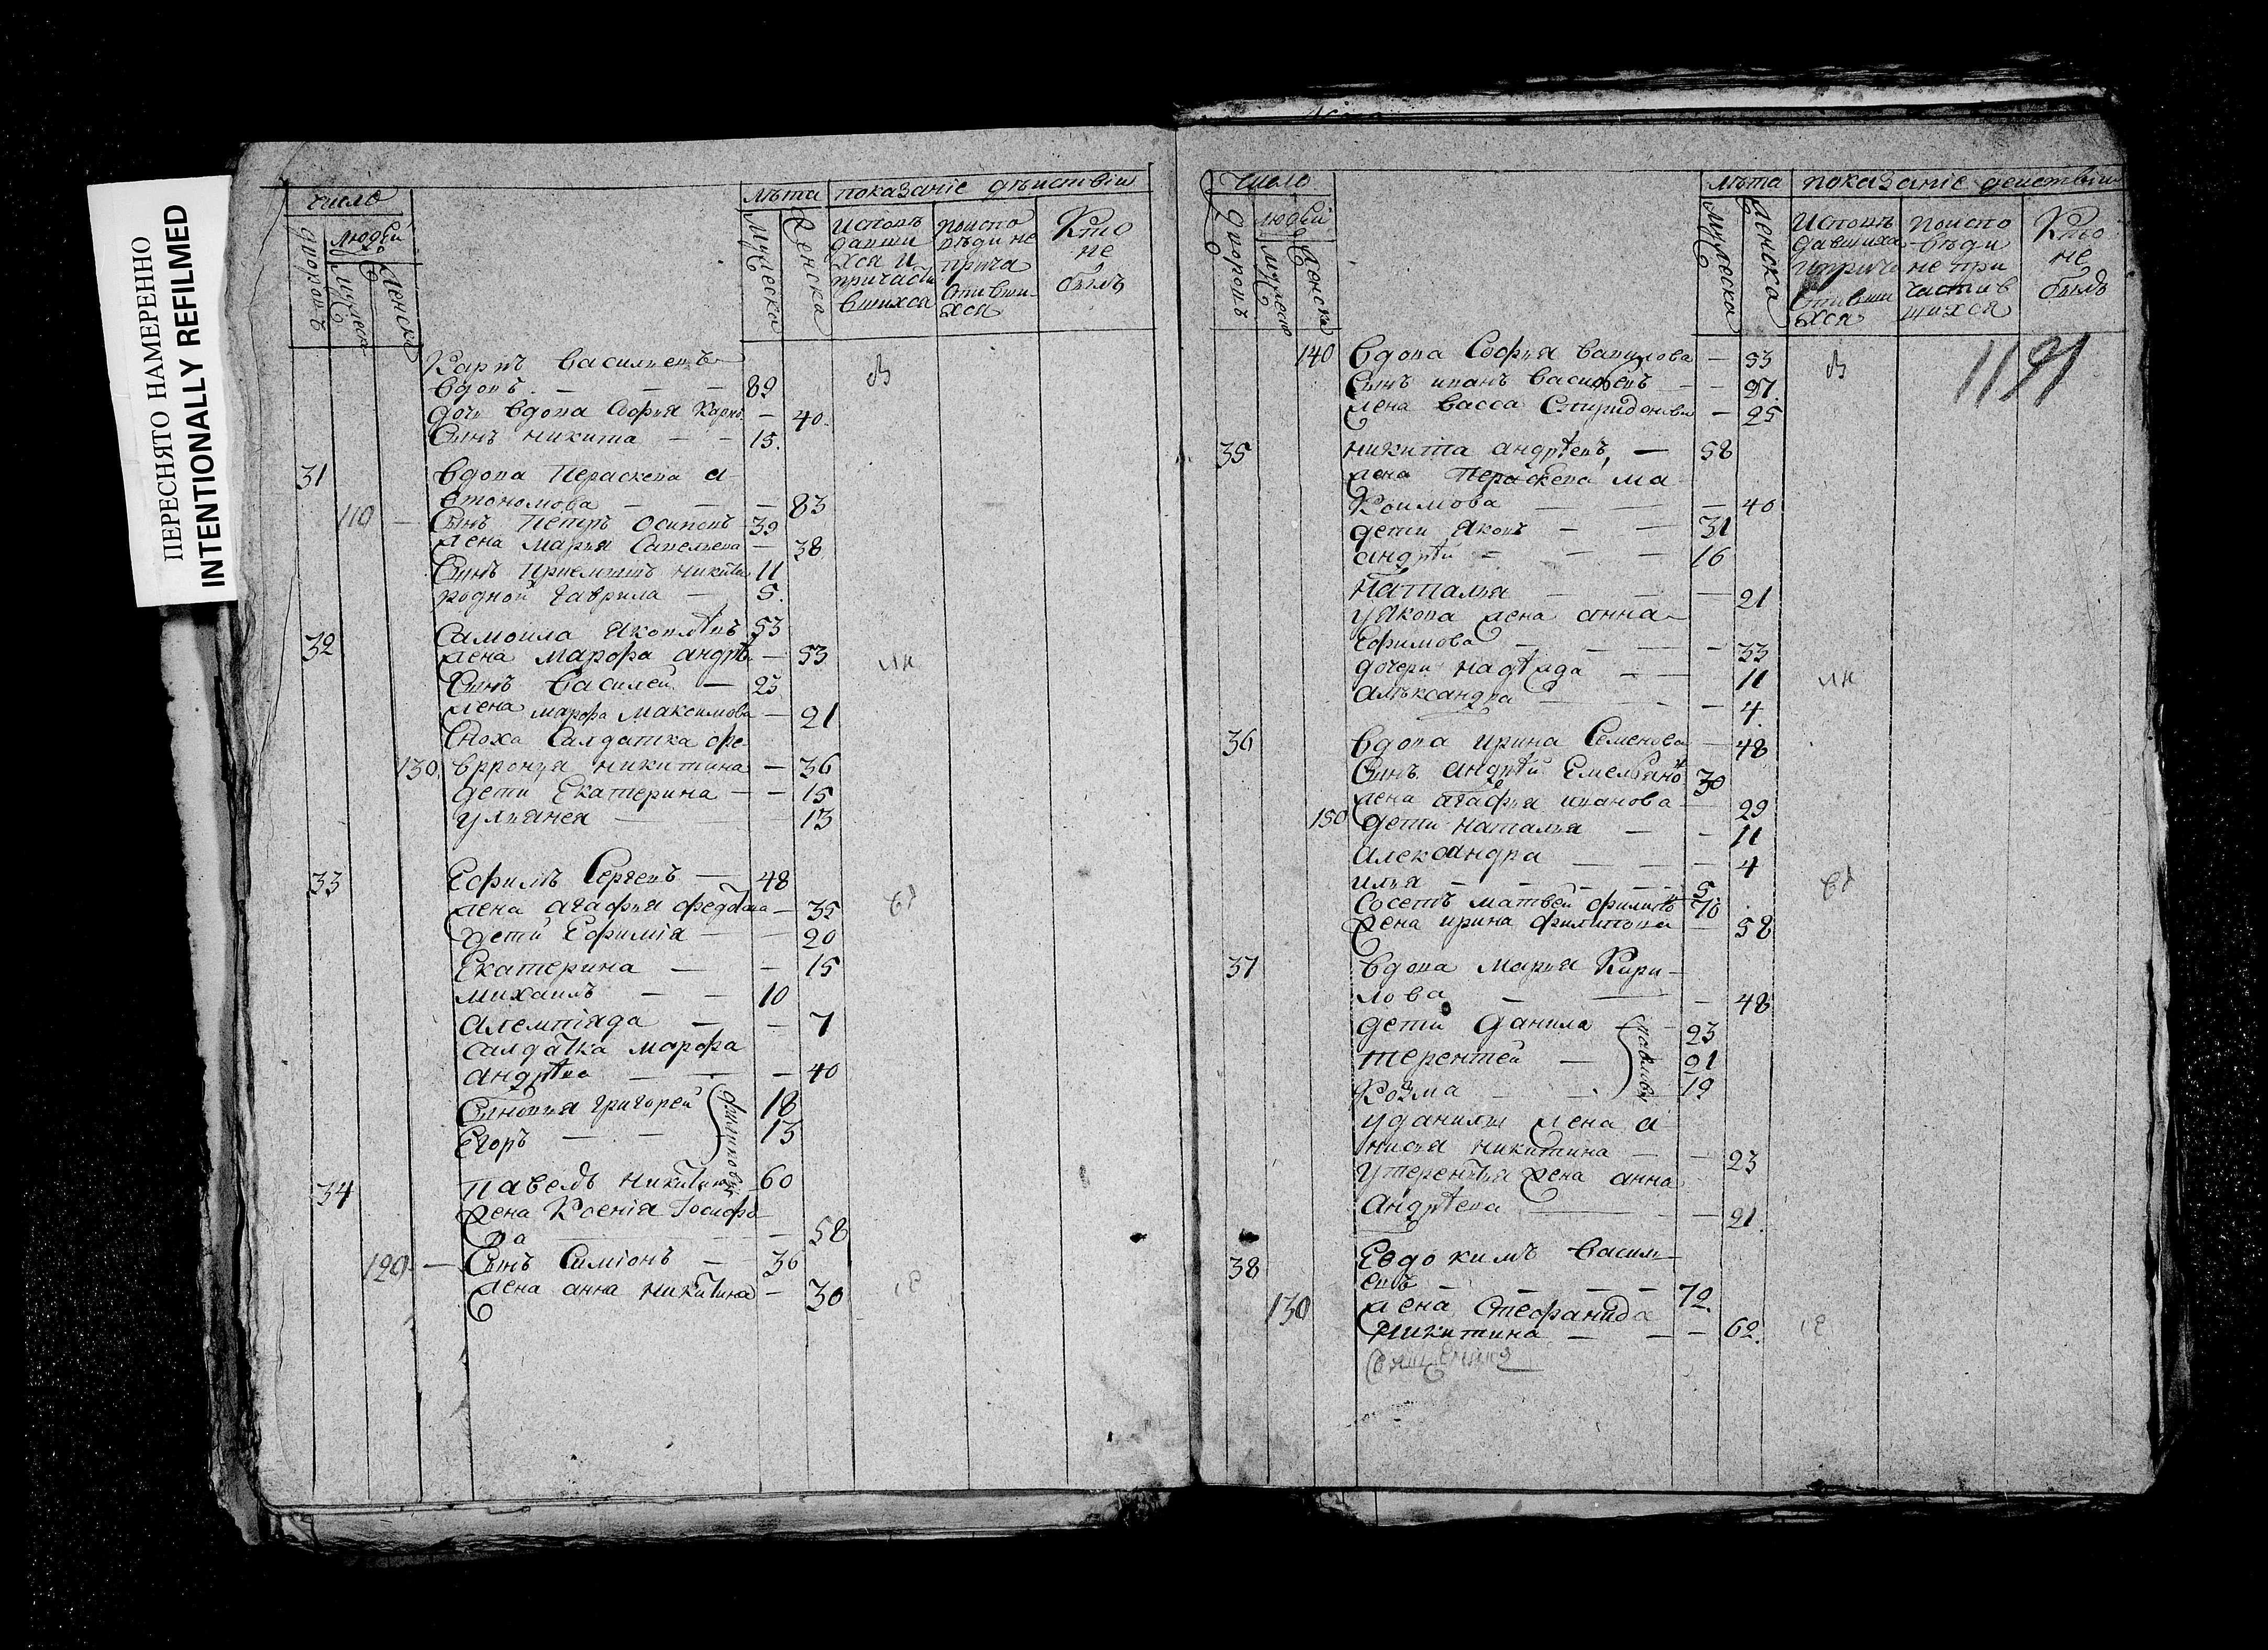 ПЕРЕСНЯТО НАМЕРЕННО
INTENTIONALLY REFILMED
число
людей
дворовъ
мужеск
женска
лѣта
показанїе дѣиствїи
мужеска
женска
Исповѣ
давши
хся и
причасти
вшихса
поиспо
вѣди не
прича
стивши
хся
Кто
не
былъ
Карпъ васильевъ
вдовъ — — — 82
дочь вдова Софья — 40
Сынъ никита — — 15
31 вдова Пераскева а
втономова — — — 83
110 — Сынъ Петръ Осиповъ 39
жена марья Савельева — 38
Сынъ приемышъ никита 11
родной Гаврила — 5
32 Самоила яковлевъ 53
жена марфа андрѣ — 53
Сынъ василей — 23
жена марфа максимова — 21
Сноха Салдатка фе
130 вронья никитина — 36
дети Екатерина — — 15
ульянея — 13
33 Ефимъ Сергевъ — 48
жена агафья федотова — 35
дети Ефимїя — — 20
Екатерина — — 15
михаилъ — — 10
алемпїяда — — 7
салдатка марфа
андрѣва — — — 40
Сыновья григорей 18
Егоръ — — 13
филиповы
34 павелъ никитинъ 60
жена Ксенїя Іосифо
ва — 58
120 — Сынъ Симїонъ — 36
жена анна никитина — 30
число
людей
дворовъ
мужеск
женска
лѣта
показанїе деиствїи
мужеска
женска
Исповѣ
давшихся
и прича
стивши
хся
поиспо
вѣди
не при
частив
шихся
Кто
не
былъ
1191
140 вдова Софья вавилова — 53
Сынъ иванъ васильевъ — — 27
жена васса Спиридонова — 25
35 никита андрѣевъ — 58
жена Пераскева ма
ксимова — — — 40
дети яковъ — — 31
андрѣй — — — 16
наталья — — — 21
у якова жена анна
Ефимова — — — 33
дочери надѣжда — — 11
алѣксандра — — 4
36 вдова ирина Семенова — 48
Сынъ андрѣй Емельяно 30
жена агафья иванова — 29
150 дети наталья — — 11
александра — — — 4
илья — — — 5
Сосетъ матвей филипъ 70
жена ирина филипова — 58
37 вдова марья Кири
лова — — — 48
дети данила — 23
терентей — 21
Козма — 19
павловы
у данилы жена а
нисья никитина — — 23
у терентья жена анна
андрѣева — — 21
38 Евдокимъ васил
евъ — — — 72
130 жена Стефанида
никитина — — — 62
Священникъ